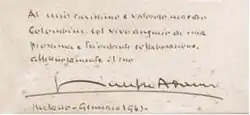 Al mio carissimo e valoroso maestro
Colombini, col vivo augurio di una
prossima e feconda collaborazione,
affettuosamente il suo
Milano - Gennaio 1941.